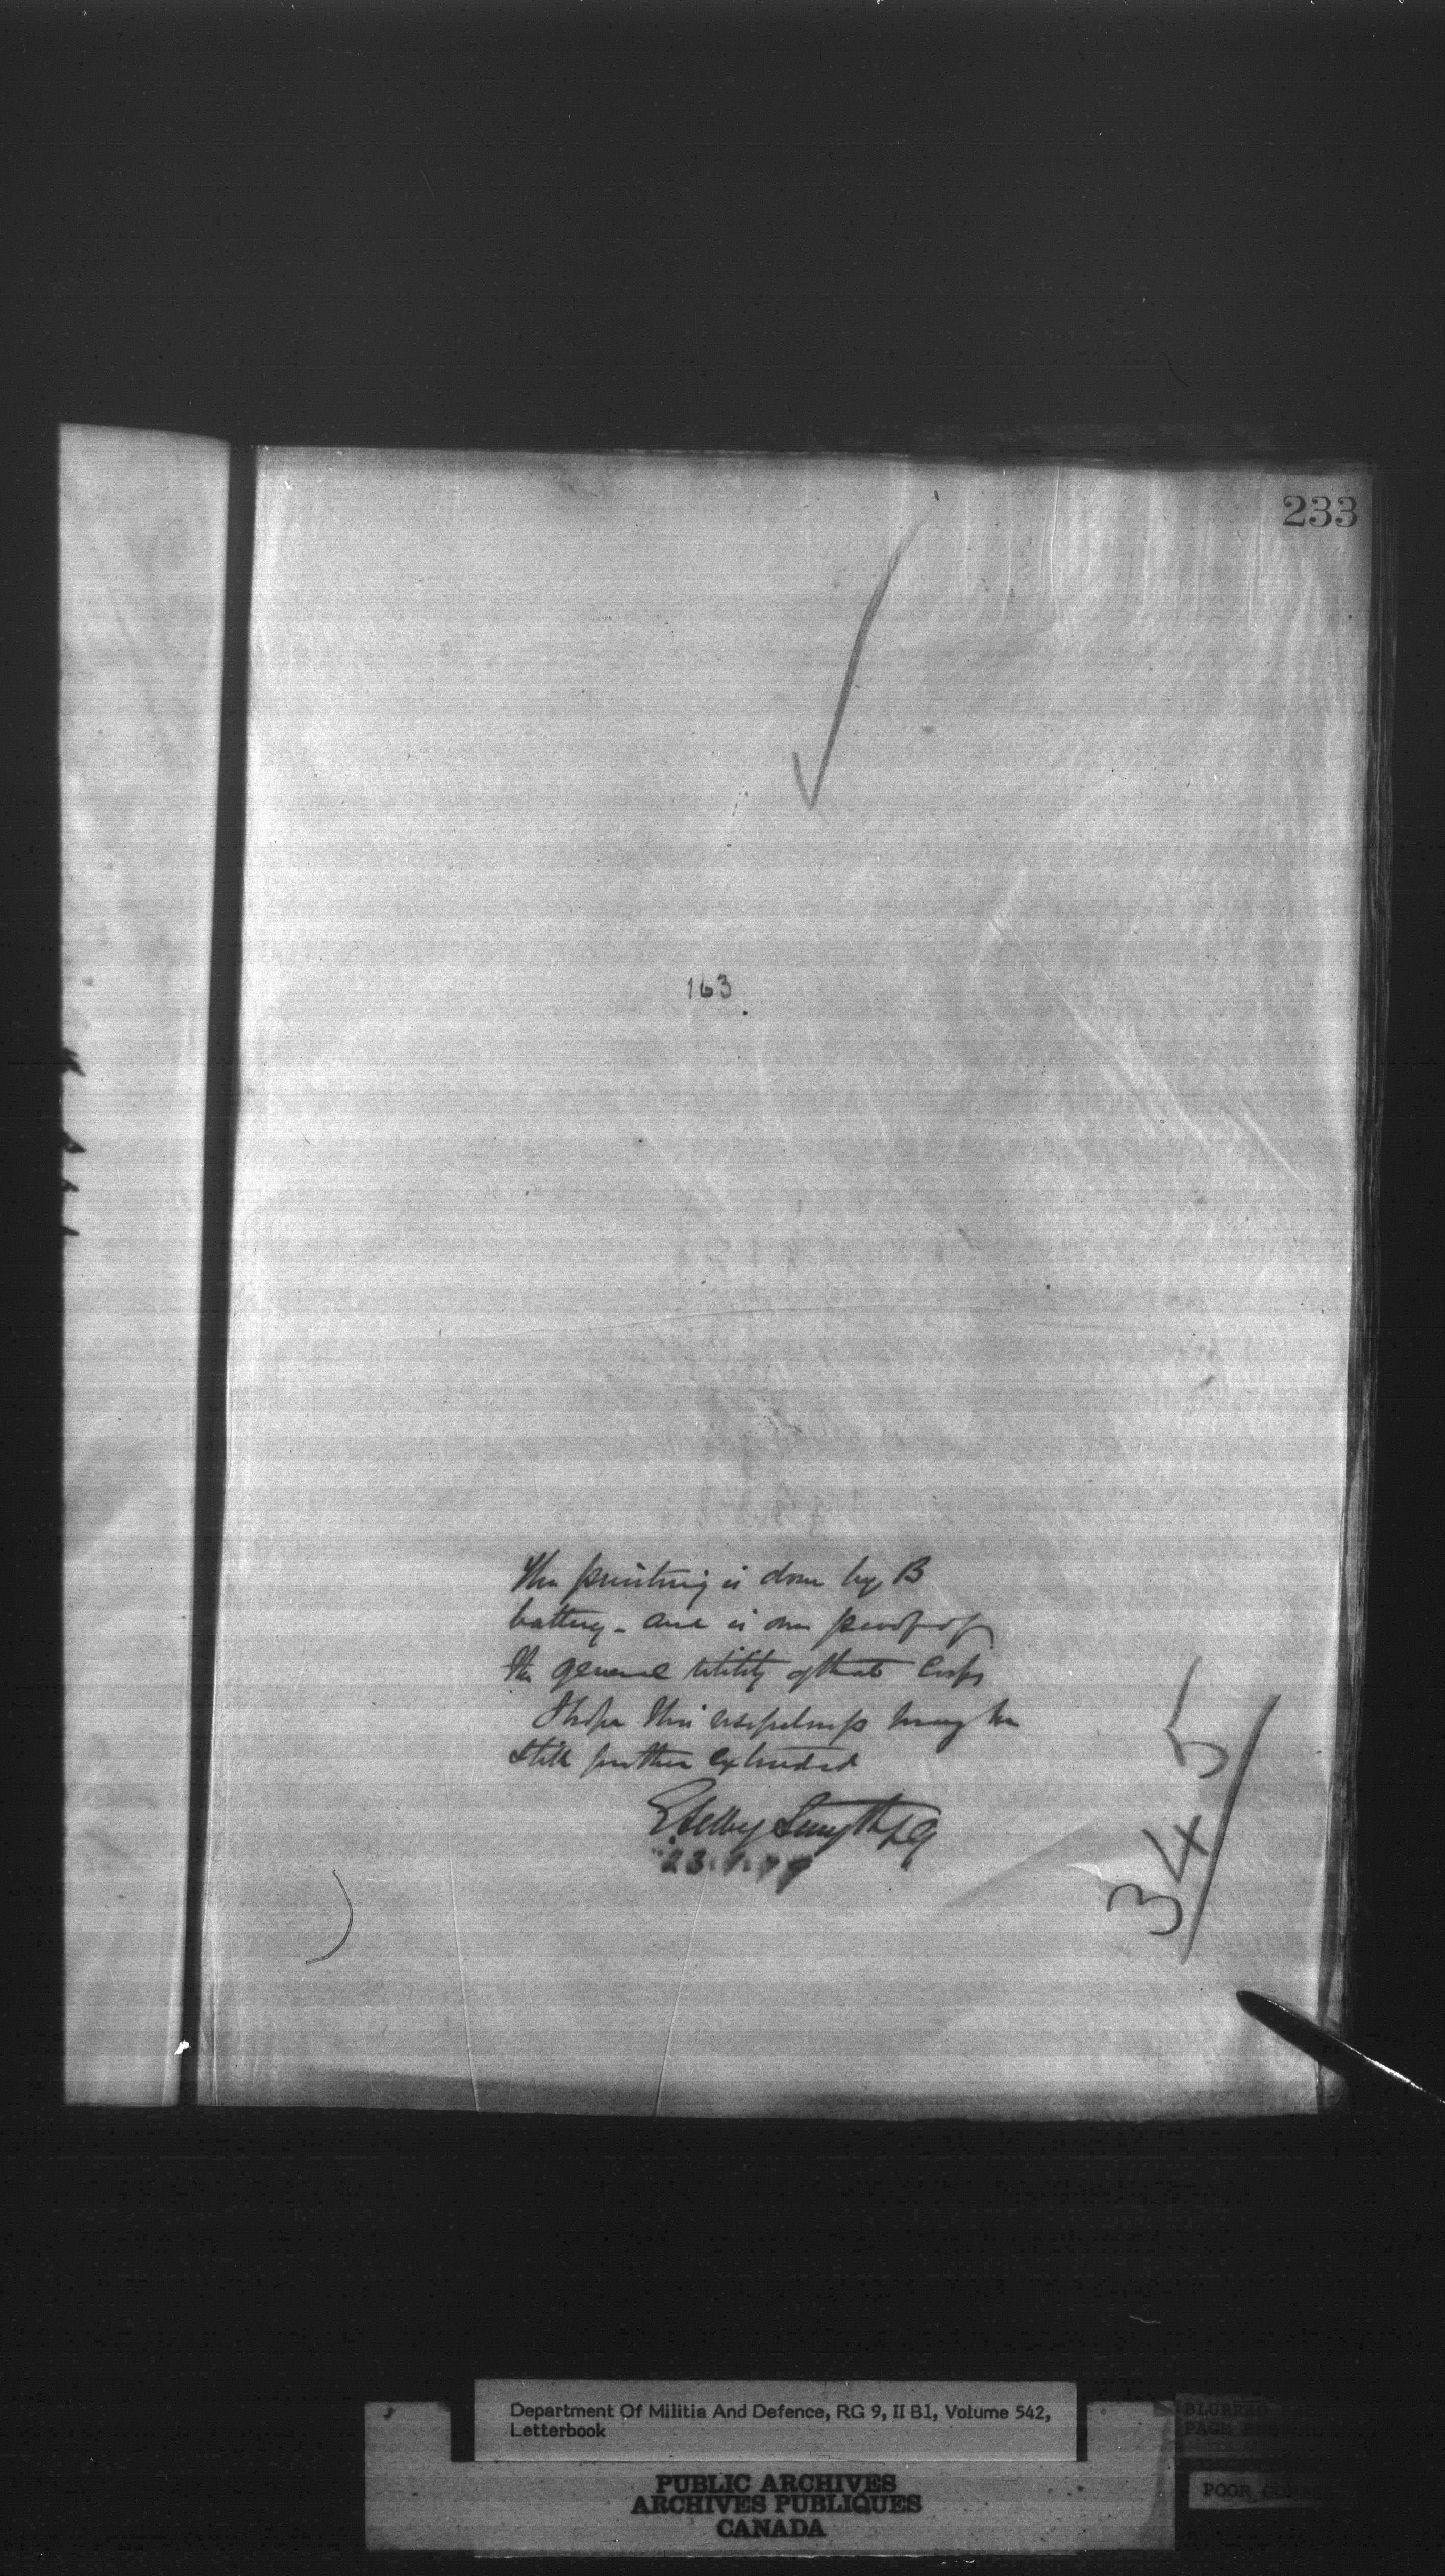 233
163
The printing is done by B
battery - and is one proof of
the general utility of that Corps
I hope this usefulness may be
still further extended
E Selby Smyth LG
23.7.77
345
Department Of Militia And Defence, RG 9, II B1, Volume 542,
Letterbook
PUBLIC ARCHIVES
ARCHIVES PUBLIQUES
CANADA
BLURRED PAGE
PAGE
POOR COPIE